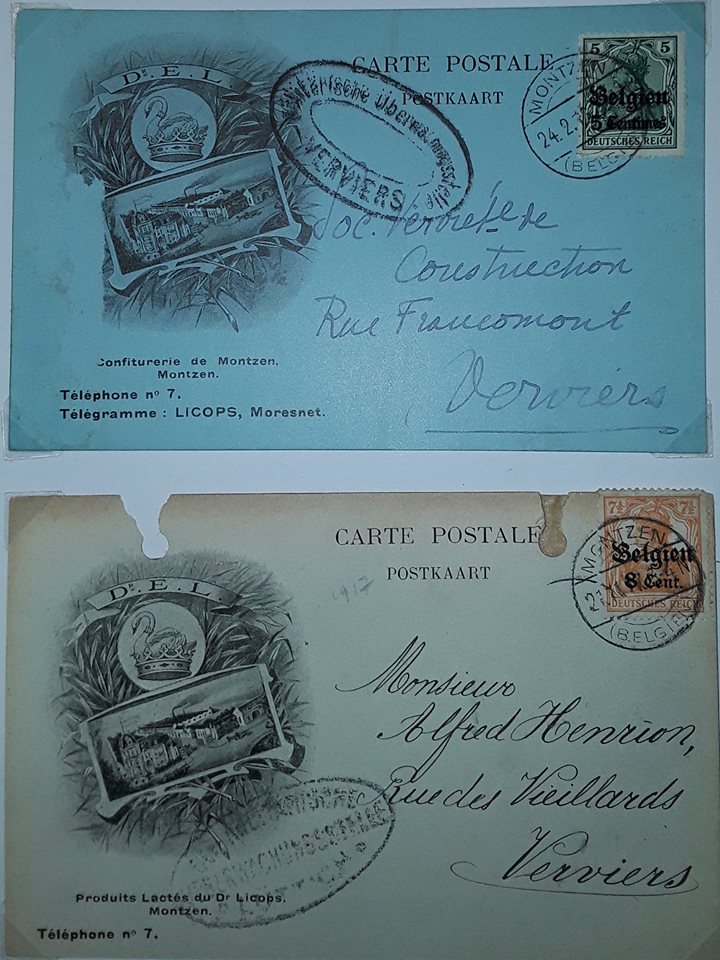 Dr. E. L
CARTE POSTALE
POSTKAART
5 5
Belgien
5 Centimes
DEUTSCHES REICH
MONTZEN
24.2.
(BELG
Militärische Überwachungsstelle
VERVIERS
Soc. Verviét.le de
Construction
Rue Francomont
Verviers
Confiturerie de Montzen,
Montzen.
Téléphone no 7.
Télégramme : LICOPS, Moresnet.
Dr. E. L
CARTE POSTALE
POSTKAART
1917
7½ 7½
Belgien
8 Cent.
DEUTSCHES REICH
MONTZEN
(BELGIEN)
Monsieur
Alfred Henrion,
Rue des Vieillards
Verviers
ÜBERWACHUNGSSTELLE
Produits Lactés du Dr Licops,
Montzen.
Téléphone no 7.